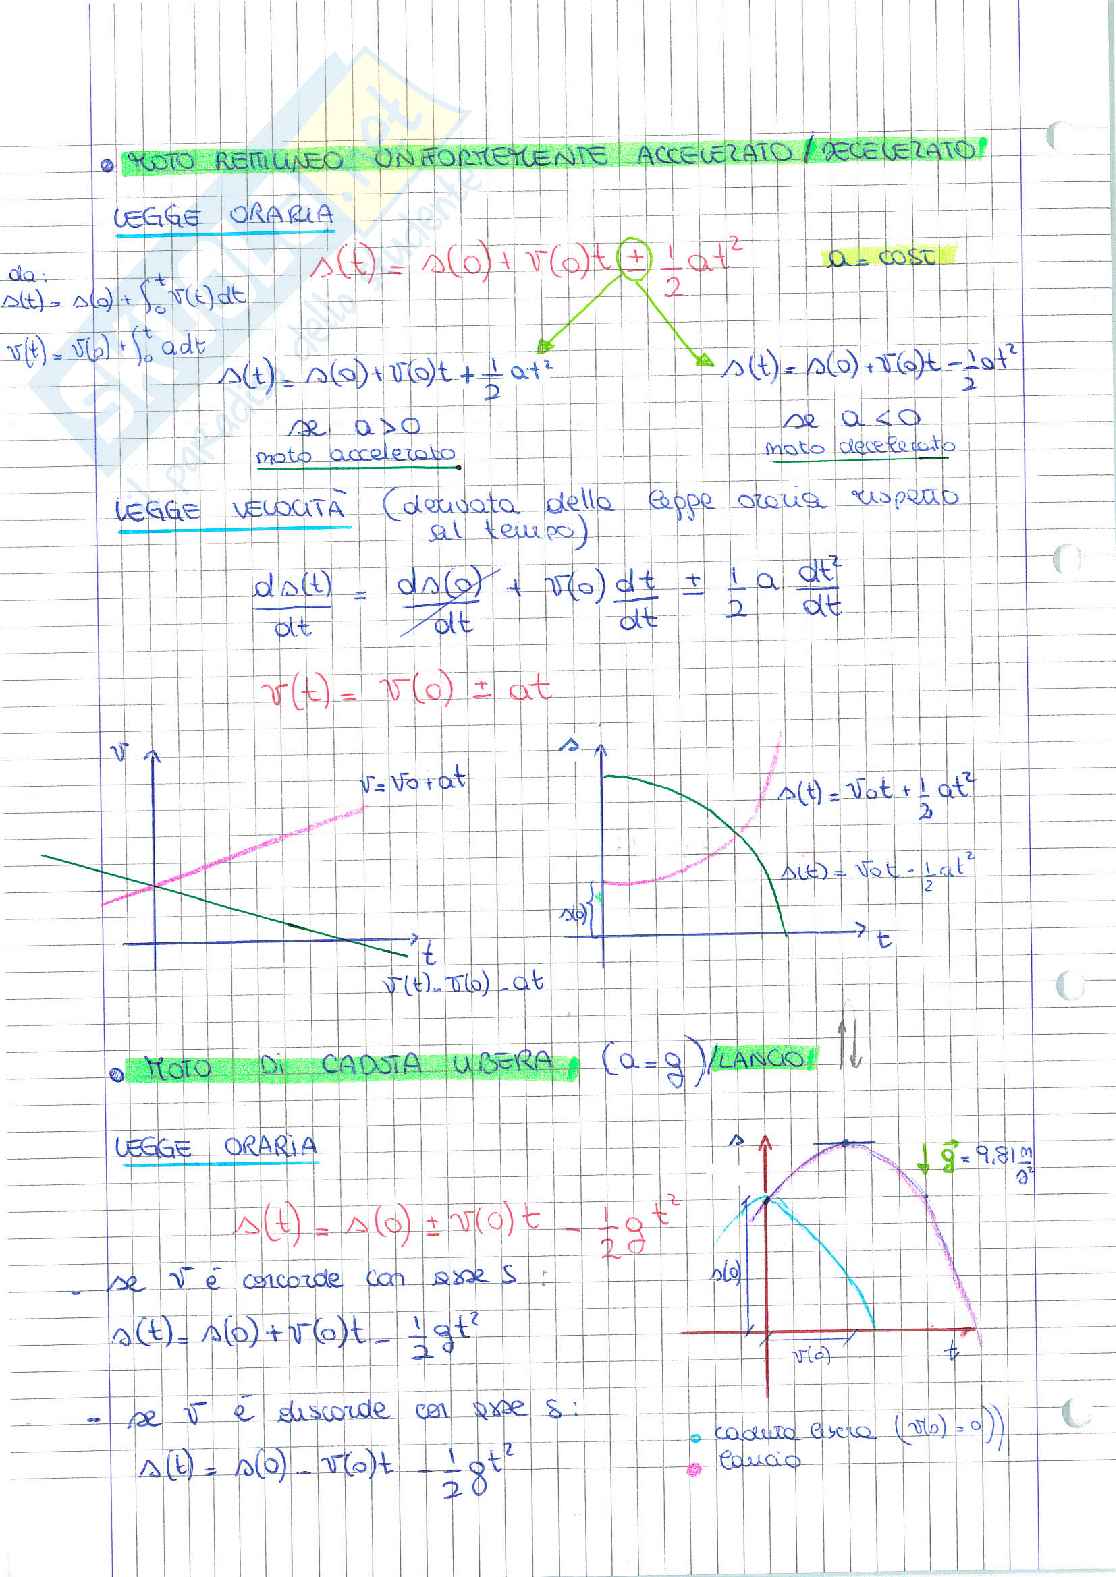 • MOTO RETTILINEO UNIFORMEMENTE ACCELERATO / DECELERATO
LEGGE ORARIA
s(t) = s(0) + v(0)t ± 1/2 at²
a = cost
da:
s(t) = s(0) + ∫₀ᵗ v(t) dt
v(t) = v(0) + ∫₀ᵗ a dt
s(t) = s(0) + v(0)t + 1/2 at²
s(t) = s(0) + v(0)t - 1/2 at²
se a > 0
se a < 0
moto accelerato
moto decelerato
LEGGE VELOCITÀ (derivata della legge oraria rispetto
al tempo)
ds(t)/dt = ds(0)/dt + v(0) dt/dt ± 1/2 a dt²/dt
v(t) = v(0) ± at
v
v = v0 + at
t
v(t) = v(0) - at
s
s(t) = v0t + 1/2 at²
s(t) = v0t - 1/2 at²
s(0)
t
• MOTO DI CADUTA LIBERA (a = g) / LANCIO
LEGGE ORARIA
s(t) = s(0) ± v(0)t - 1/2 g t²
- se v è concorde con asse s:
s(t) = s(0) + v(0)t - 1/2 gt²
- se v è discorde con asse s:
s(t) = s(0) - v(0)t - 1/2 gt²
s
g = 9,81 m/s²
s(0)
v(0)
t
• caduta libera (v(0) = 0))
• lancio
skuola.net
il paradiso dello studente